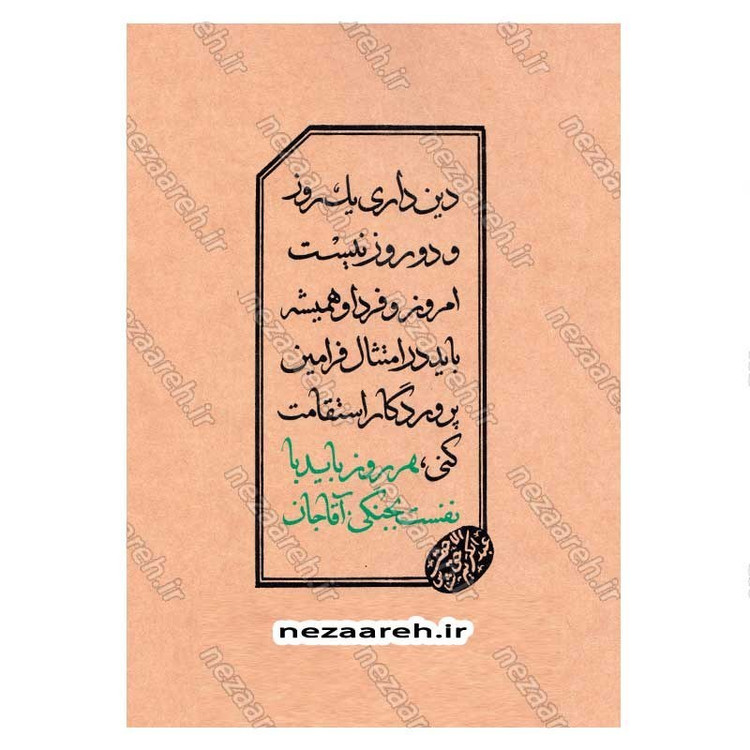 دین داری یک روز
و دو روز نیست
امروز و فردا و همیشه
باید در امتثال فرامین
پروردگار استقامت
کنی، هر روز باید با
نفست بجنگی آقاجان
الاحقر
عبدالکریم حق شناس
nezaareh.ir